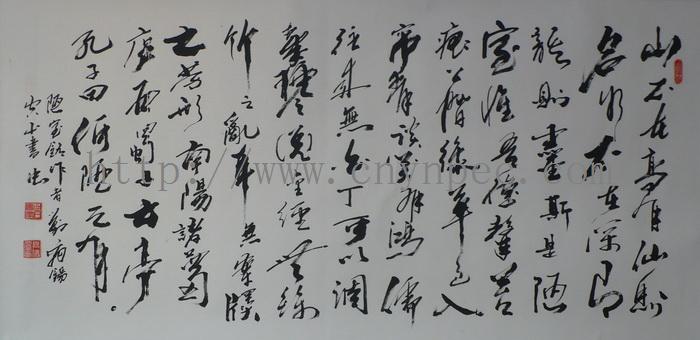 山不在高有仙則
名水不在深
龍則靈斯是陋
室惟吾德馨苔
痕上階綠草色入
帘青談笑有鴻儒
往來無白丁可以調
素琴閱金經無絲
竹之亂耳無案牘
之勞形南陽諸葛
廬西蜀子云亭
孔子曰何陋之有。
陋室銘作者劉禹錫
http://www.cnynpec.com